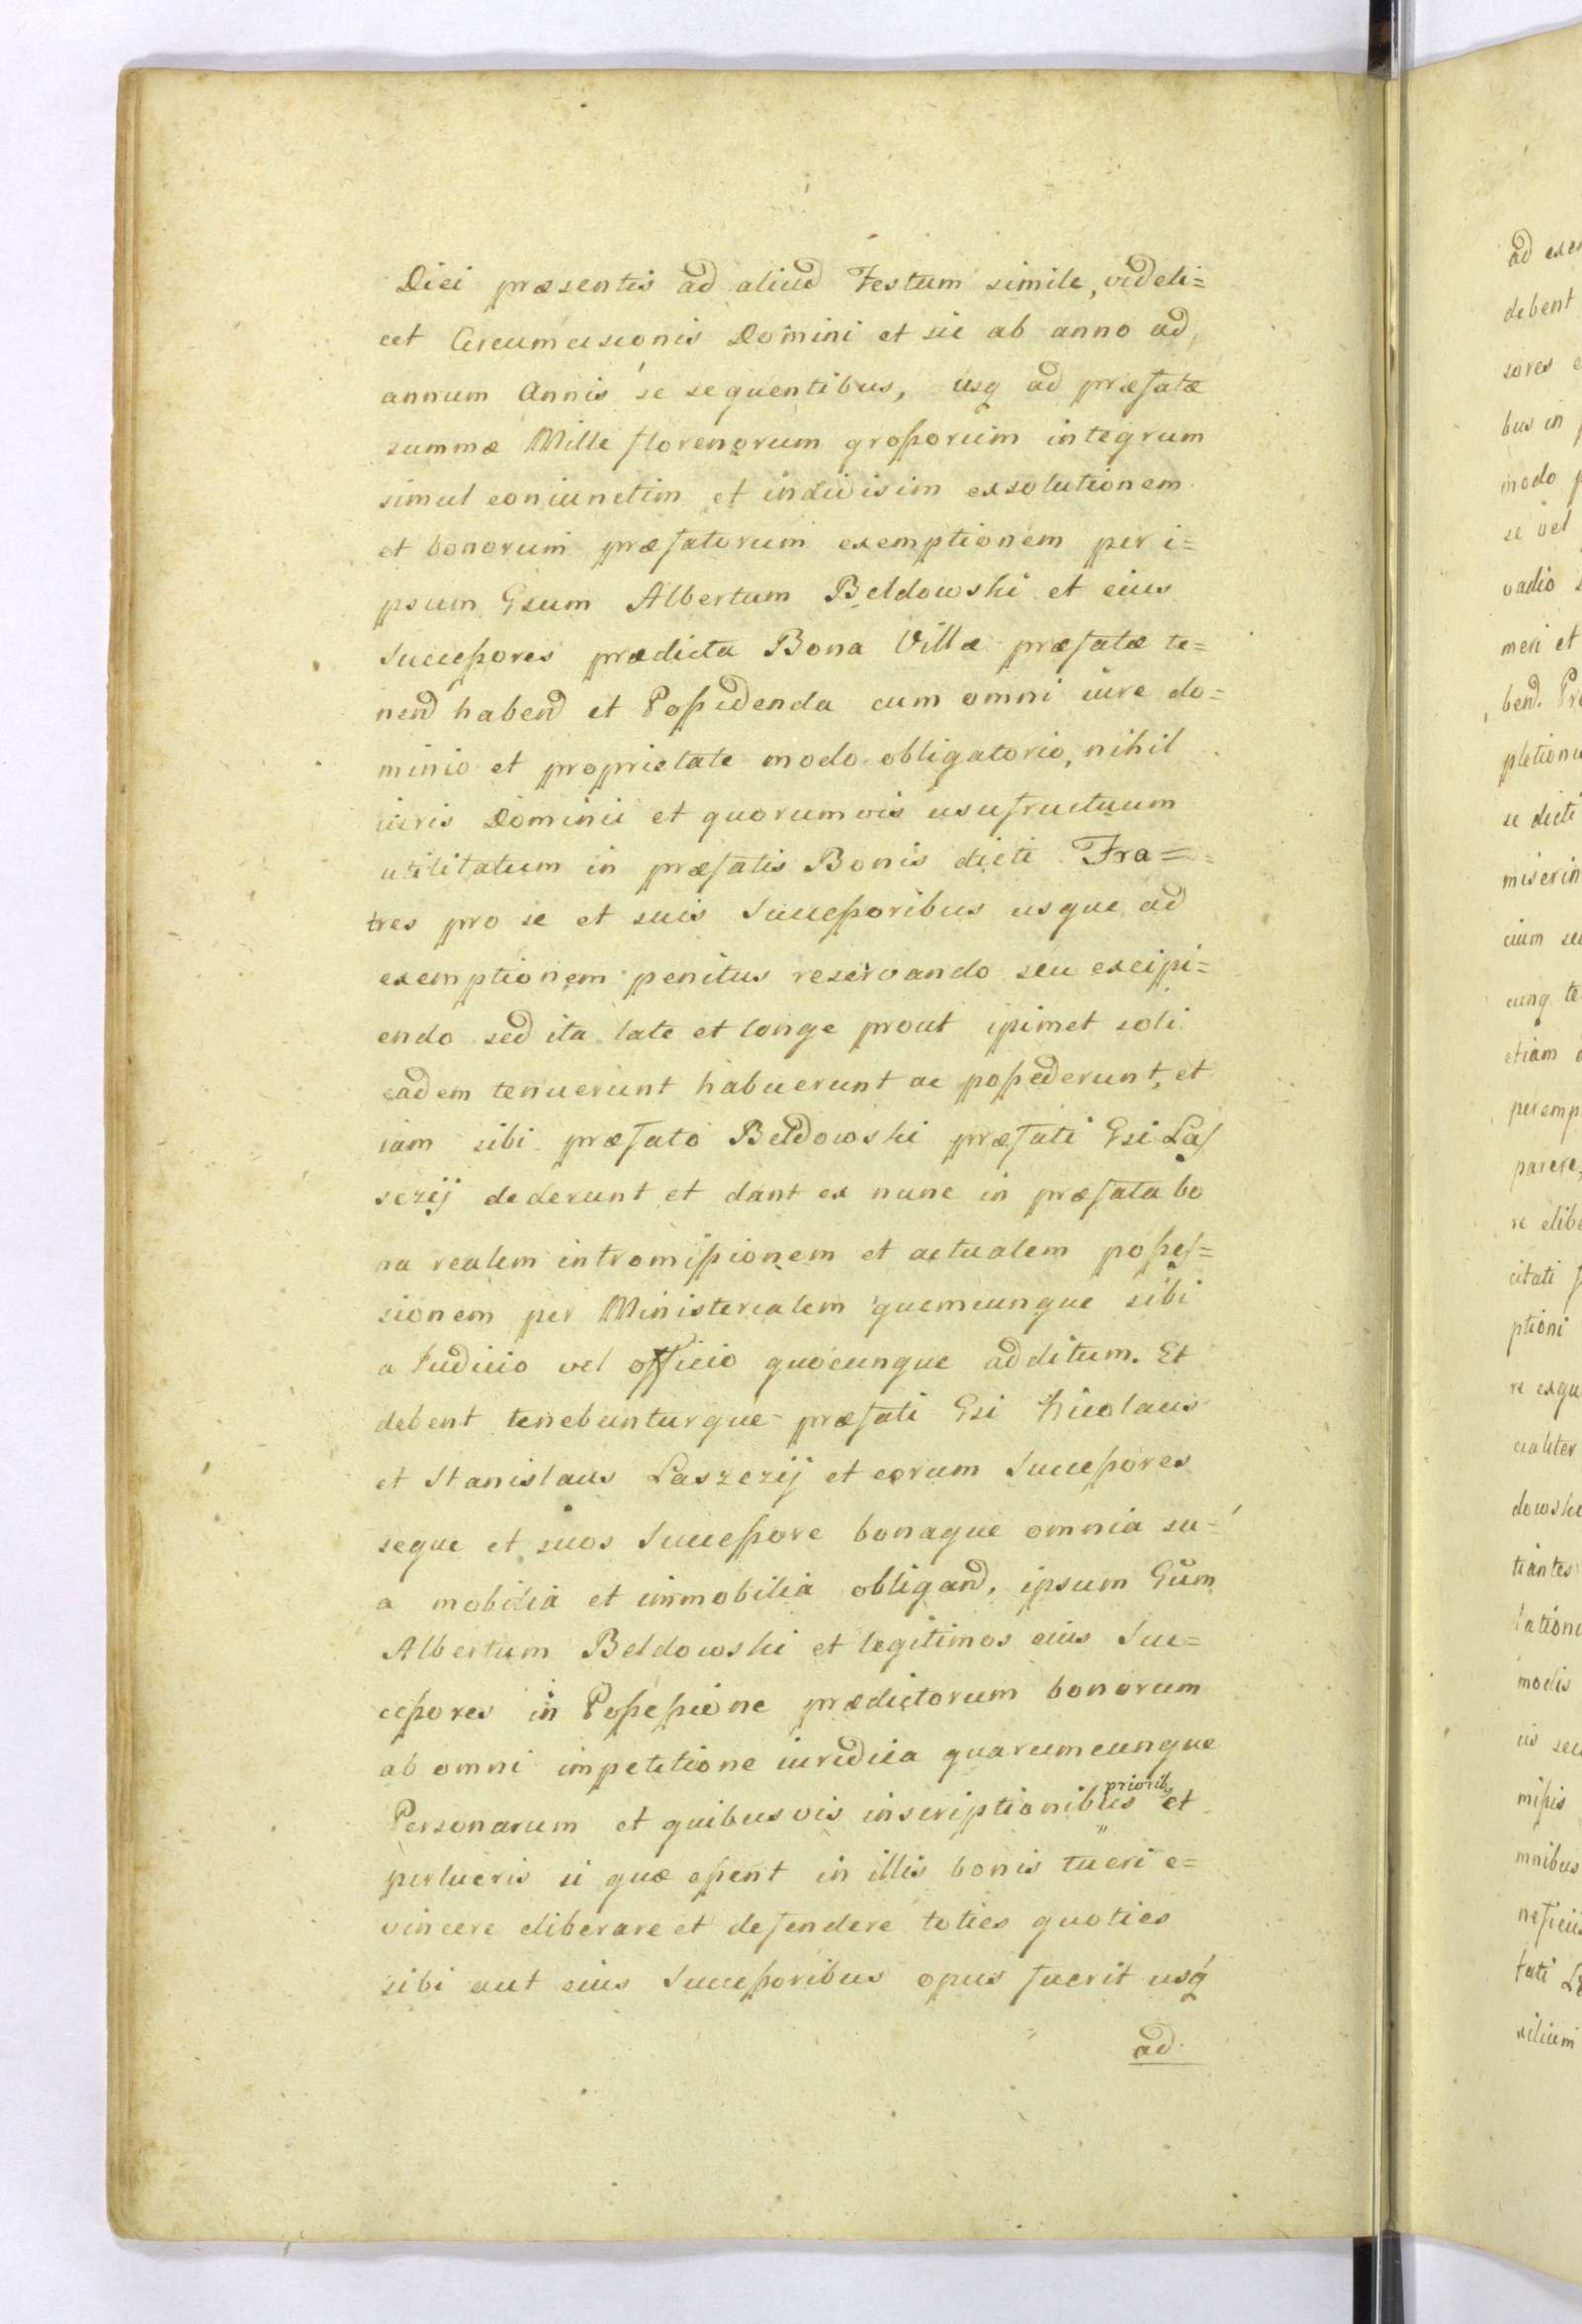 Diei præsentis ad aliud Festum simile, videli=
cet Circumcisionis Domini et sic ab anno ad
annum Annis se sequentibus, usq ad præfatæ
summæ Mille florenorum grossorum integrum
simul coniunctim et indivisim exsolutionem
et bonorum præfatorum exemptionem per i=
psum Gsum Albertum Beldowski et eius
Successores prædicta Bona Villæ præfatæ te=
nend habend et Possidenda cum omni iure do=
minio et proprietate modo obligatorio, nihil
iuris Dominii et quorumvis usufructuum
utilitatum in præfatis Bonis dicti Fra=
tres pro se et suis Successoribus usque ad
exemptionem penitus reservando seu excipi=
endo sed ita late et longe prout ipimet soli
eadem tenuerunt habuerunt ac possederunt, et
iam sibi præfato Beldowski præfati Gsi Las
sczij dederunt et dant ex nunc in præfata bo
na realem intromissionem et actualem posses=
sionem per Ministerialem quemcunque sibi
a Iudicio vel officio quocunque additum. Et
debent tenebunturque præfati Gsi Nicolaus
et Stanislaus Laszczij et eorum Successores
seque et suos Successore bonaque omnia su=
a mobilia et immobilia obligand, ipsum Gum
Albertum Beldowski et legitimos eius Suc=
cessores in Possessione prædictorum bonorum
ab omni impetitione iuridica quarumcunque
Personarum et quibusvis inscriptionibus priorib et
perlucris si quæ essent in illis bonis tueri e=
vincere eliberare et defendere toties quoties
sibi aut eius Successoribus opus fuerit usq
ad
ad
debent
sores e
bus in
modo p
se vel
vadio
meri et
bend. Pr
pletion
se dicti
miserin
cium se
cunq te
etiam
peremp
parere,
re elibe
citati
ptioni
re exqu
ciabiter
dowski
tiantes
lation
modis
iis sec
missis
mnibus
neficiis
fati
xilium